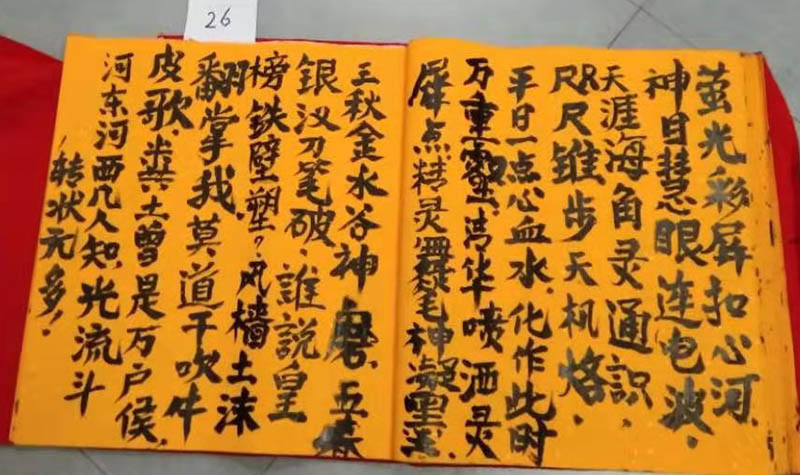 26
萤光彩屏扣心河,
神目慧眼连电波.
天涯海角灵通識
尺步天机烙.
平日一点心血水,化作此时
万重靈.清华喷洒灵
犀点精灵.毫神凝墨
三秋金水谷神磨.五春
银汉刀笔破.誰説皇
榜铁壁塑?风樯土沫
翻掌我.莫道干吹牛
皮歌.粪土曾是万户侯,
河东河西几人知.光流斗
转状元多!